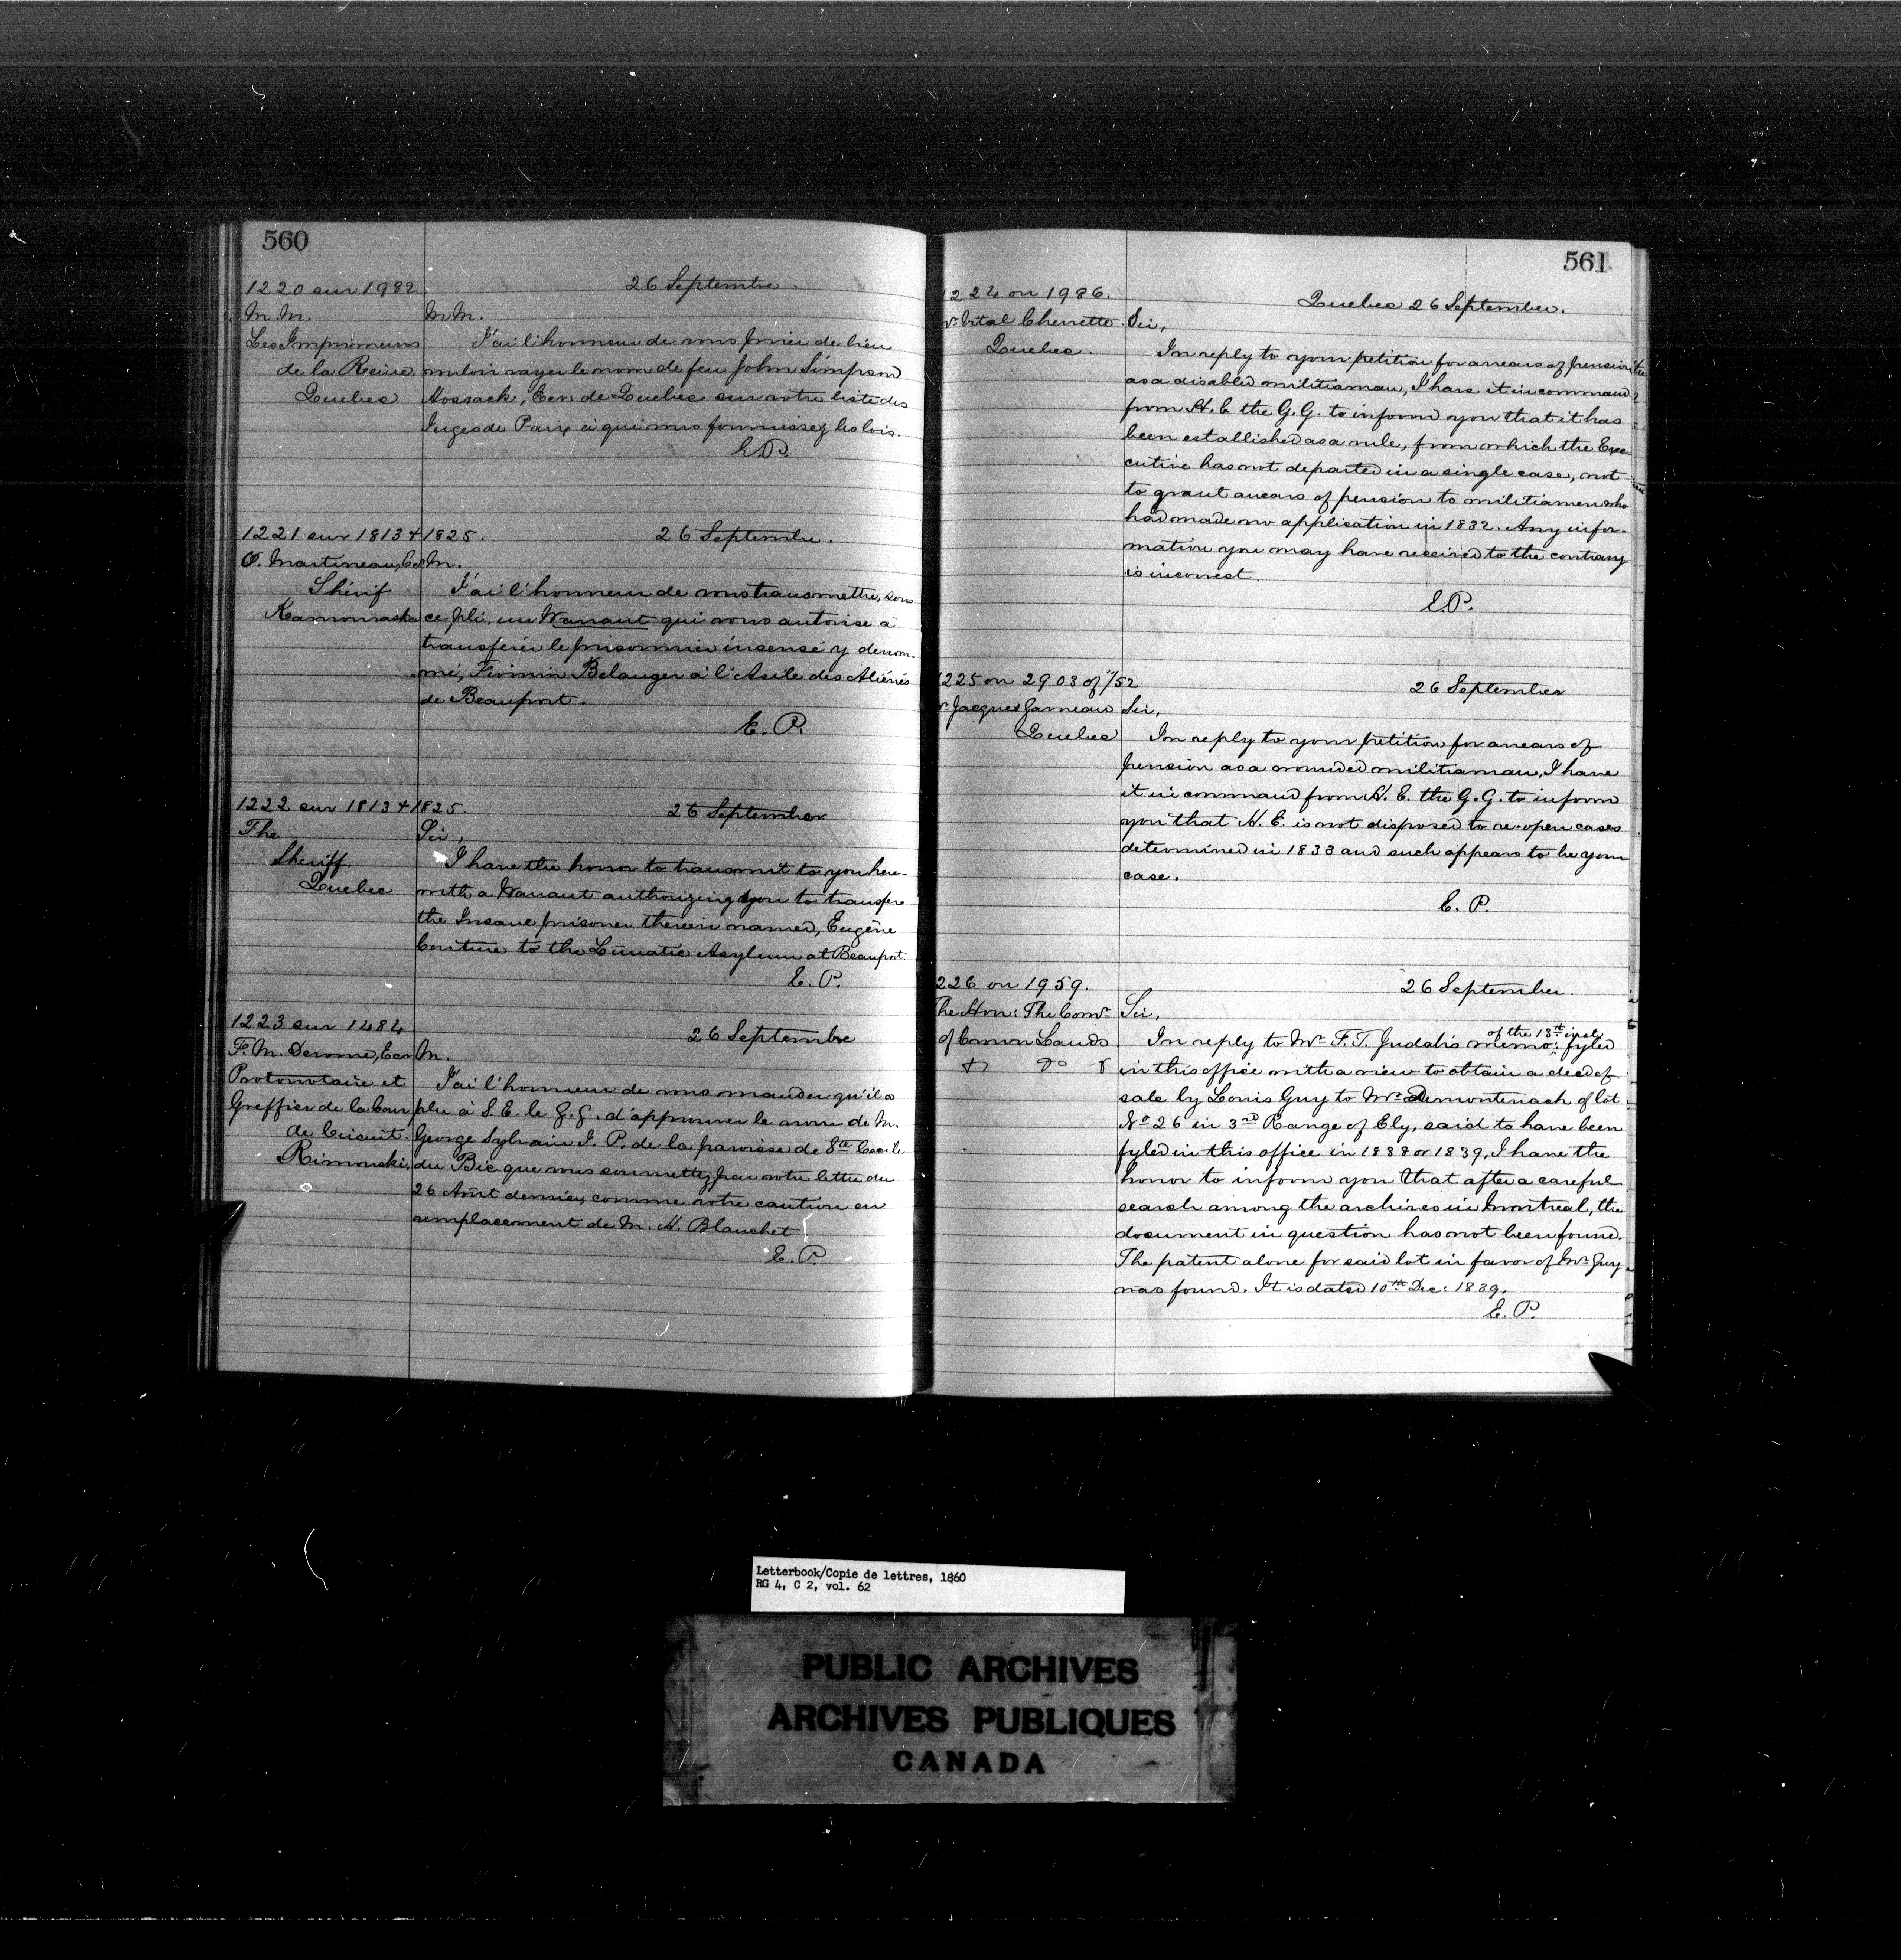 560
1220 sur 1982
26 Septembre.
M.M.
Les Imprimeurs
de la Reine
Quebec
MM.
J'ai l'honneur de vous prier de bien
vouloir rayer le nom de feu John Simpson
Hossack, Ecr: de Quebec sur votre liste des
Juges de Paix à qui vous fournissez les lois.
E.P.
1221 sur 1813 + 1825.
26 Septembre.
O. Martineau, Ecr
Shérif
Kamouraska
M.
J'ai l'honneur de vous transmettre, sous
ce pli, un Warrant qui vous autorise à
transférer le prisonnier insensé y denom-
mé, Firmin Belanger à l'Asile des Aliénés
de Beauport.
E. P.
1222 sur 1813 + 1825.
26 September
The
Sheriff
Quebec
Sir,
I have the honor to transmit to you here-
with a Warrant authorizing you to transfere
the Insane prisoner therein named, Eugène
Couture to the Lunatic Asylum at Beauport.
E. P.
1223 sur 1484
26 Septembre
F. M. Derome, Ecr
Protonotaire et
Greffier de la Cour
de Circuit
Rimouski
M.
J'ai l'honneur de vous mander qu'il a
plu à S. E. le G. G. d'approuver le nom de M.
George Sylvain J. P. de la paroisse de Ste Cecile
du Bic que vous soumettez par votre lettre du
26 Août dernier, comme votre caution en
remplacement de M. H. Blanchet
E. P.
561
1224 on 1986.
Quebec 26 September.
Mr. Vital Chenette
Quebec.
Sir,
In reply to your petition for arrears of pension
as a disabled militiaman, I have it in command
from H. E. the G. G. to inform you that it has
been established as a rule, from which the Exe-
cutive has not departed in a single case, not
to grant arrears of pension to militiamen who
had made no application in 1832. Any infor-
mation you may have received to the contrary
is incorrect.
E.P.
1225 on 2903 of 1/52
26 September
r. Jacques Garneau
Quebec
Sir,
In reply to your petition for arrears of
pension as a wounded militiaman, I have
it in command from H. E. the G. G. to inform
you that H. E. is not disposed to re-open cases
determined in 1833 and such appears to be your
case.
E. P.
226 on 1959.
26 September.
The Hon: The Comr
of Crown Lands
Sir,
In reply to Mr F. T. Judah's memo: of the 13th inst. fyled
in this office with a view to obtain a deed of
sale by Louis Guy to Mr Demontenach of lot
No 26 in 3rd Range of Ely, said to have been
fyled in this office in 1838 or 1839, I have the
honor to inform you that after a careful
search among the archives in Montreal, the
document in question has not been found.
The patent alone for said lot in favor of Mr Guy
was found. It is dated 10th Dec: 1839.
E. P.
Letterbook/Copie de lettres, 1860
RG 4, C 2, vol. 62
PUBLIC ARCHIVES
ARCHIVES PUBLIQUES
CANADA